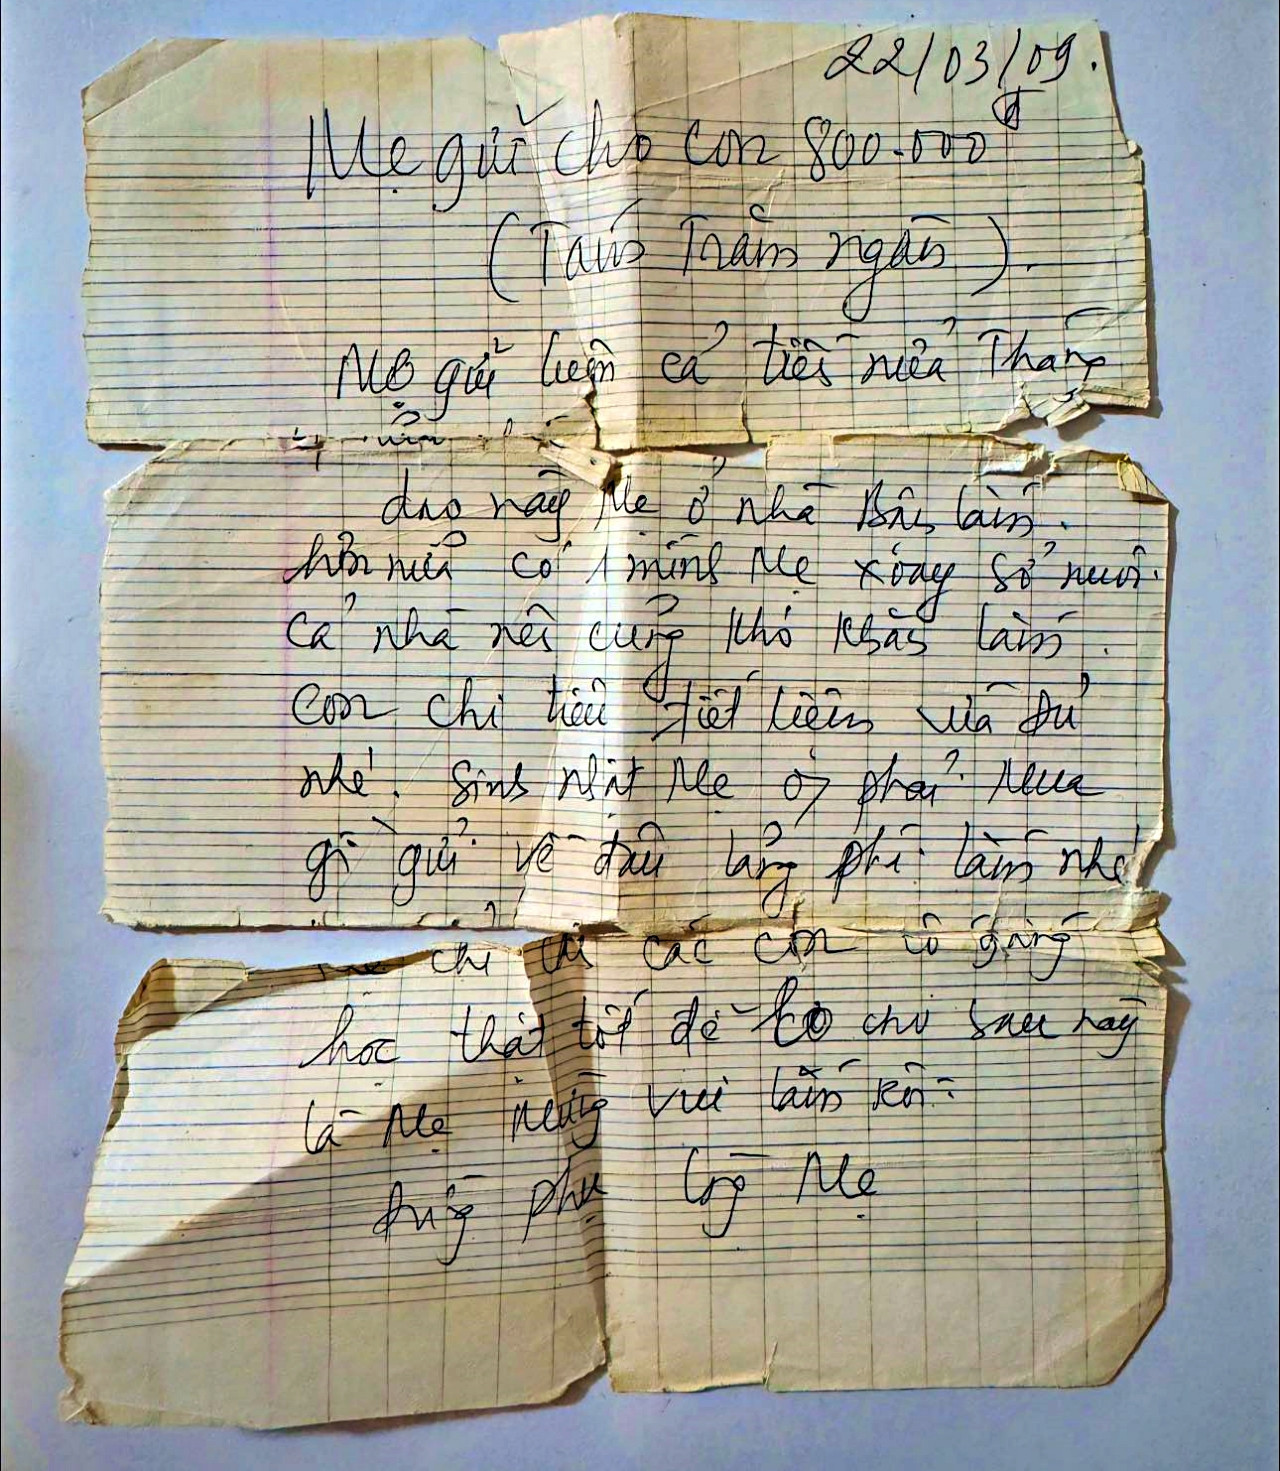 22/03/09.
Mẹ gửi cho con 800.000đ
(Tám Trăm ngàn).
Mẹ gửi luôn cả tiền nửa Tháng
dạo này Mẹ ở nhà Bận lắm.
hơn nữa có 1 mình Mẹ xoay sở nuôi
cả nhà nên cũng khó khăn lắm.
con chi tiêu tiết kiệm vừa đủ
nhé. Sinh nhật Mẹ ko phải Mua
gì gửi về đâu lãng phí lắm nhé
Mẹ chỉ các con cố gắng
học thật tốt để cho sau này
là Mẹ Mừng vui lắm rồi.
Đừng phụ lòng Mẹ